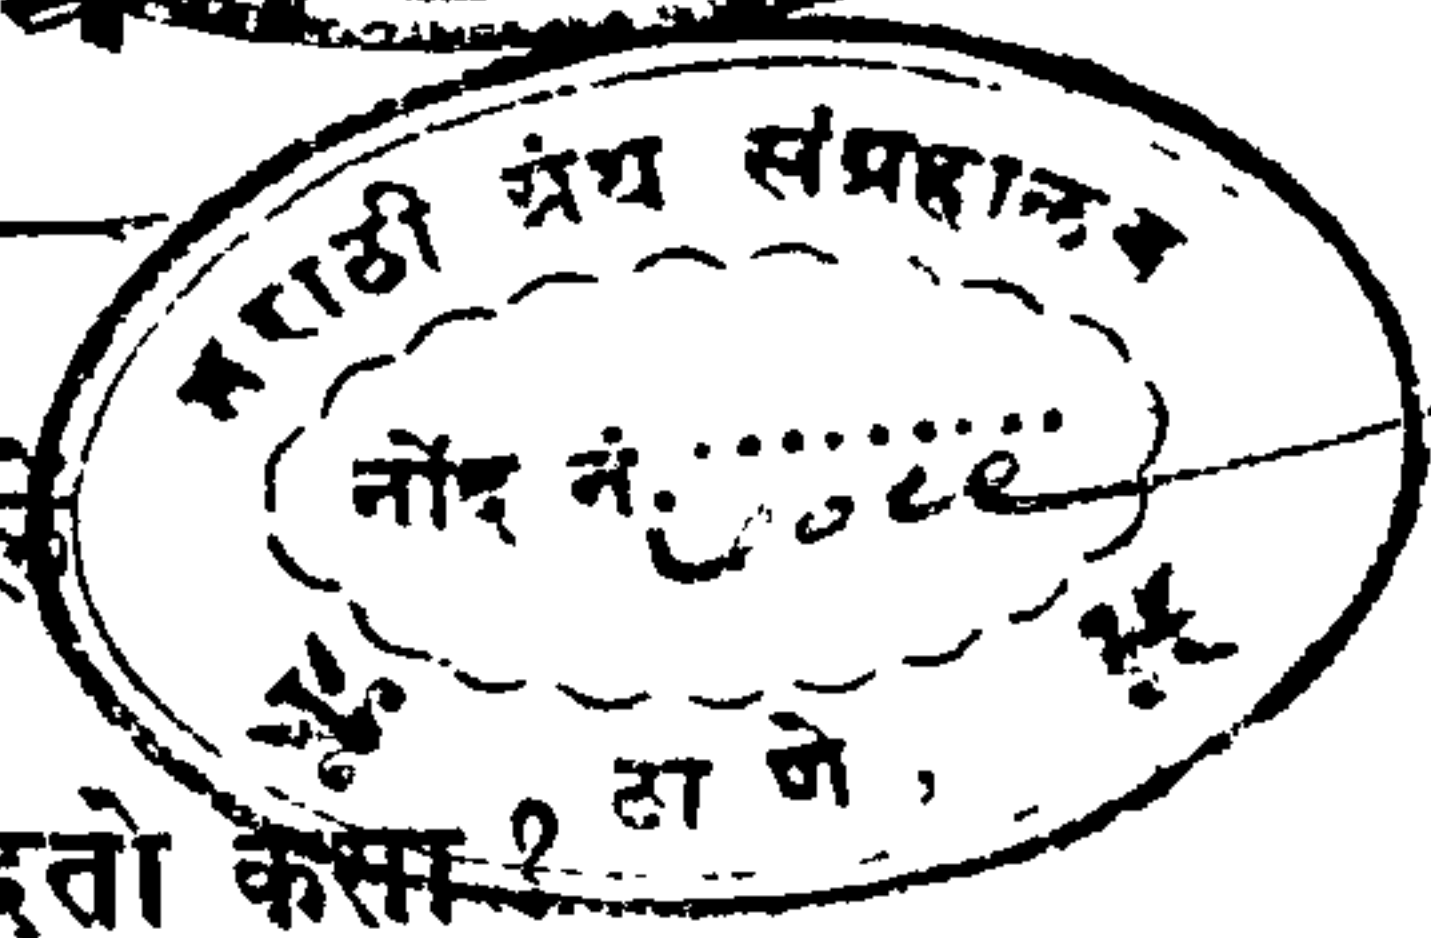 मराठी ग्रंथ संग्रहालय
नोंद नं.
ठाणे,
कसा